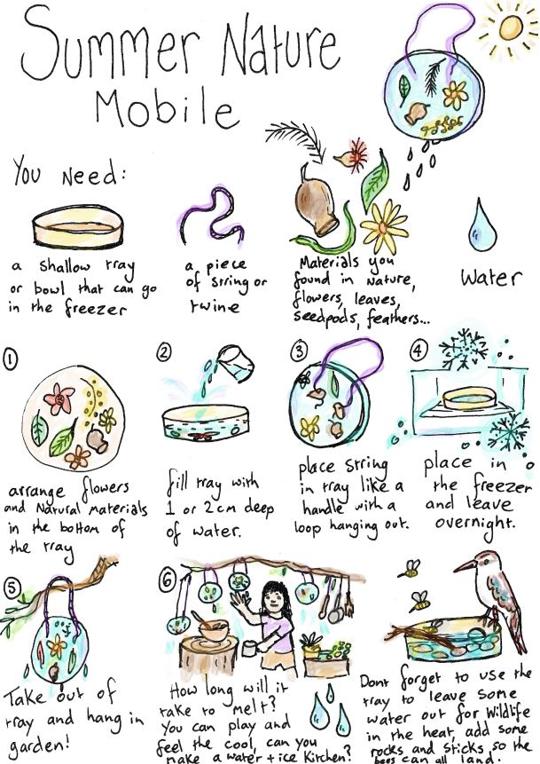 Summer Nature
Mobile
You Need:
a shallow tray
or bowl that can go
in the freezer
a piece
of string or
twine
Materials you
found in nature,
flowers, leaves,
seedpods, feathers...
Water
1
arrange flowers
and Natural materials
in the bottom of
the tray
2
fill tray with
1 or 2cm deep
of water.
3
place string
in tray like a
handle with a
loop hanging out.
4
place in
the freezer
and leave
overnight.
5
Take out of
tray and hang in
garden!
6
How long will it
take to melt?
You can play and
feel the cool, can you
make a water + ice Kitchen?
Dont forget to use the
tray to leave some
water out for Wildlife
in the heat, add some
rocks and sticks so the
bees can all land.